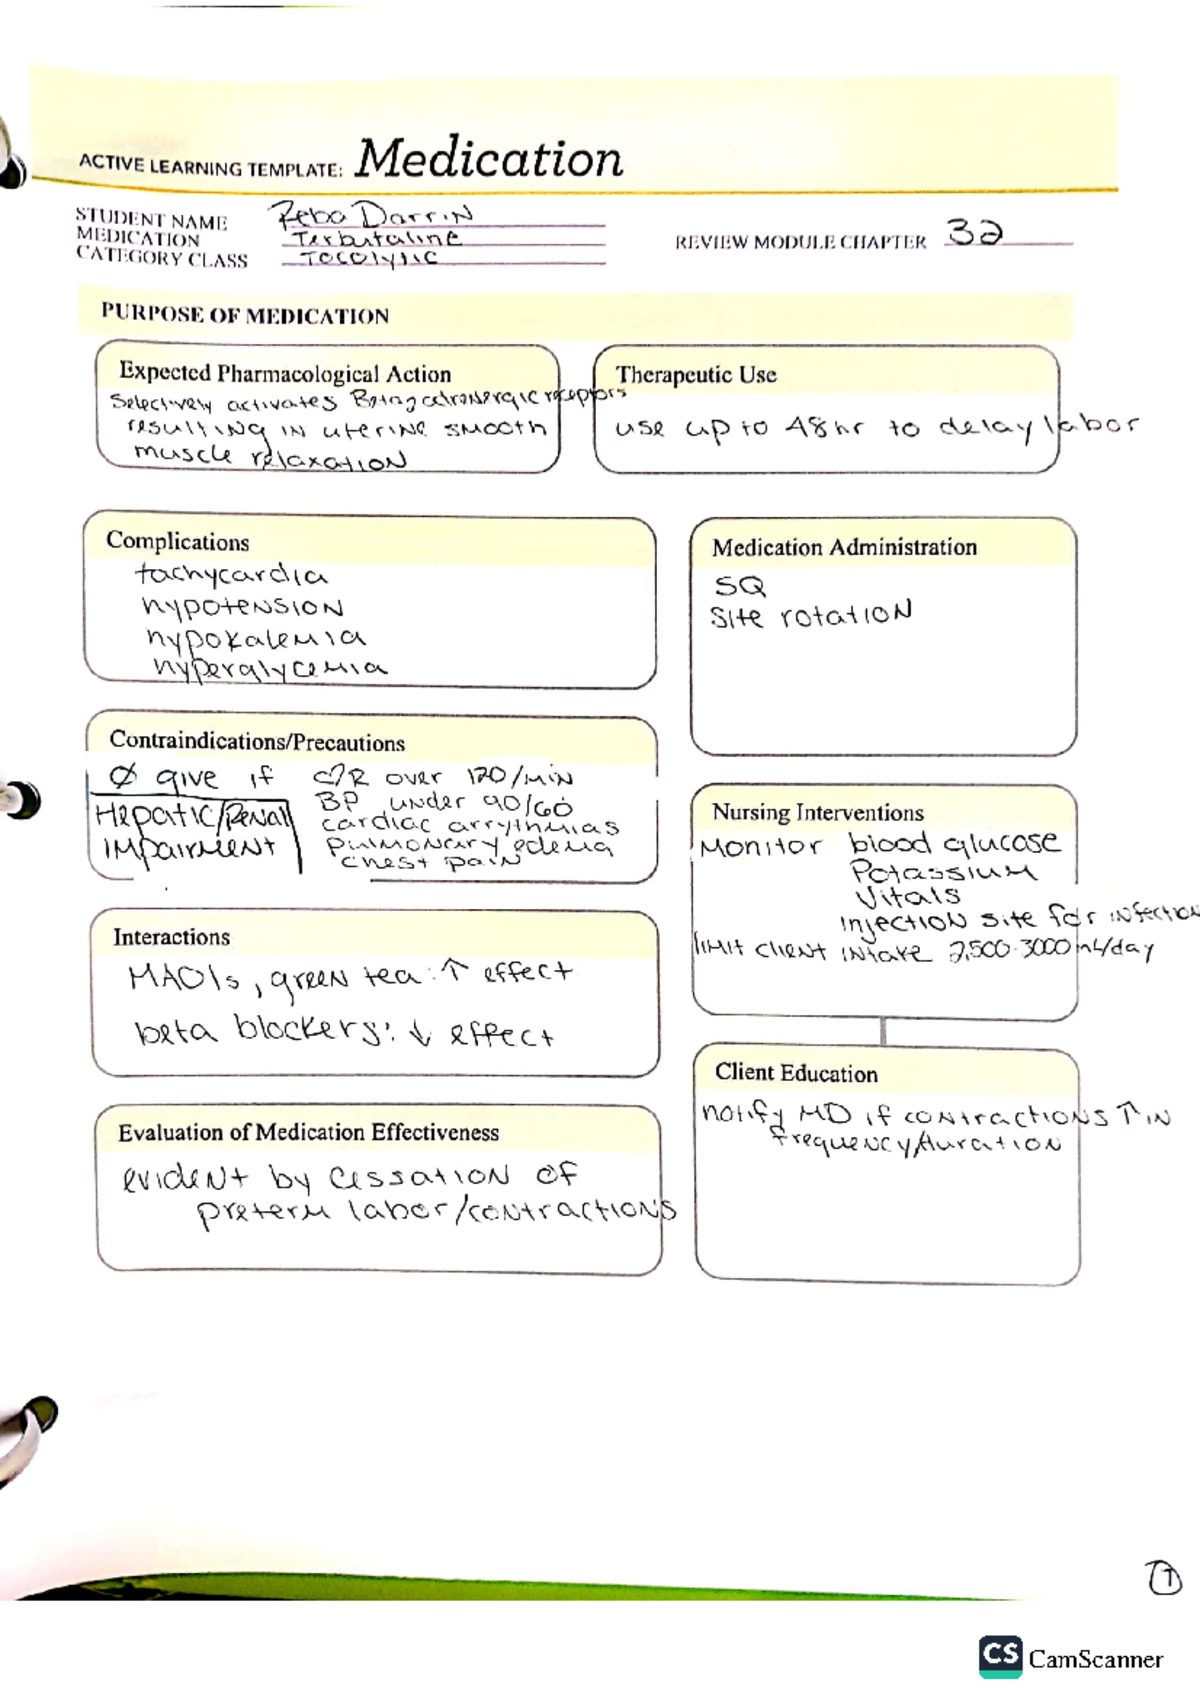 ACTIVE LEARNING TEMPLATE: Medication
STUDENT NAME Reba Darrin
MEDICATION Terbutaline
CATEGORY CLASS Tocolytic
REVIEW MODULE CHAPTER 32
PURPOSE OF MEDICATION
Expected Pharmacological Action
Selectively activates Beta2 adrenergic receptors
resulting in uterine smooth
muscle relaxation
Therapeutic Use
use up to 48hr to delay labor
Complications
tachycardia
hypotension
hypokalemia
hyperglycemia
Medication Administration
SQ
Site rotation
Contraindications/Precautions
Ø give if
Hepatic/Renal
impairment
♡R over 120/min
BP under 90/60
cardiac arrythmias
pulmonary edema
chest pain
Nursing Interventions
Monitor blood glucose
Potassium
Vitals
injection site for infection
limit client intake 2,500-3000mL/day
Interactions
MAOIs, green tea: ↑ effect
beta blockers: ↓ effect
Client Education
notify MD if contractions ↑ in
frequency/duration
Evaluation of Medication Effectiveness
evident by cessation of
preterm labor/contractions
CS CamScanner